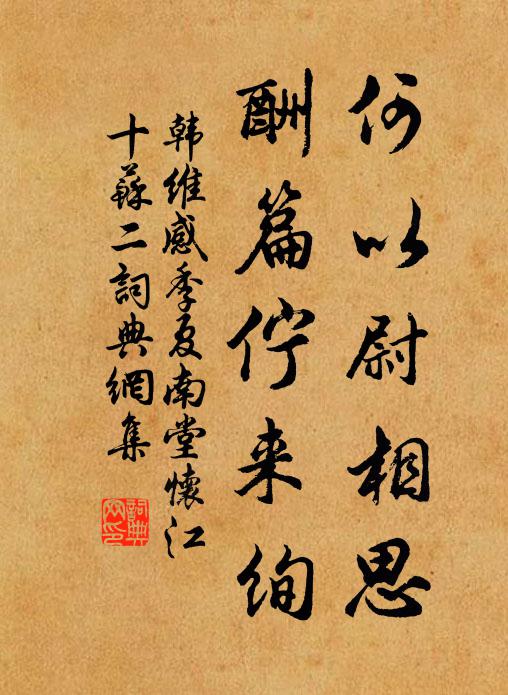 何以尉相思
酬篇佇来絢
韩維感季夏南堂懷江
十蘇二詞典網集
詞典网印